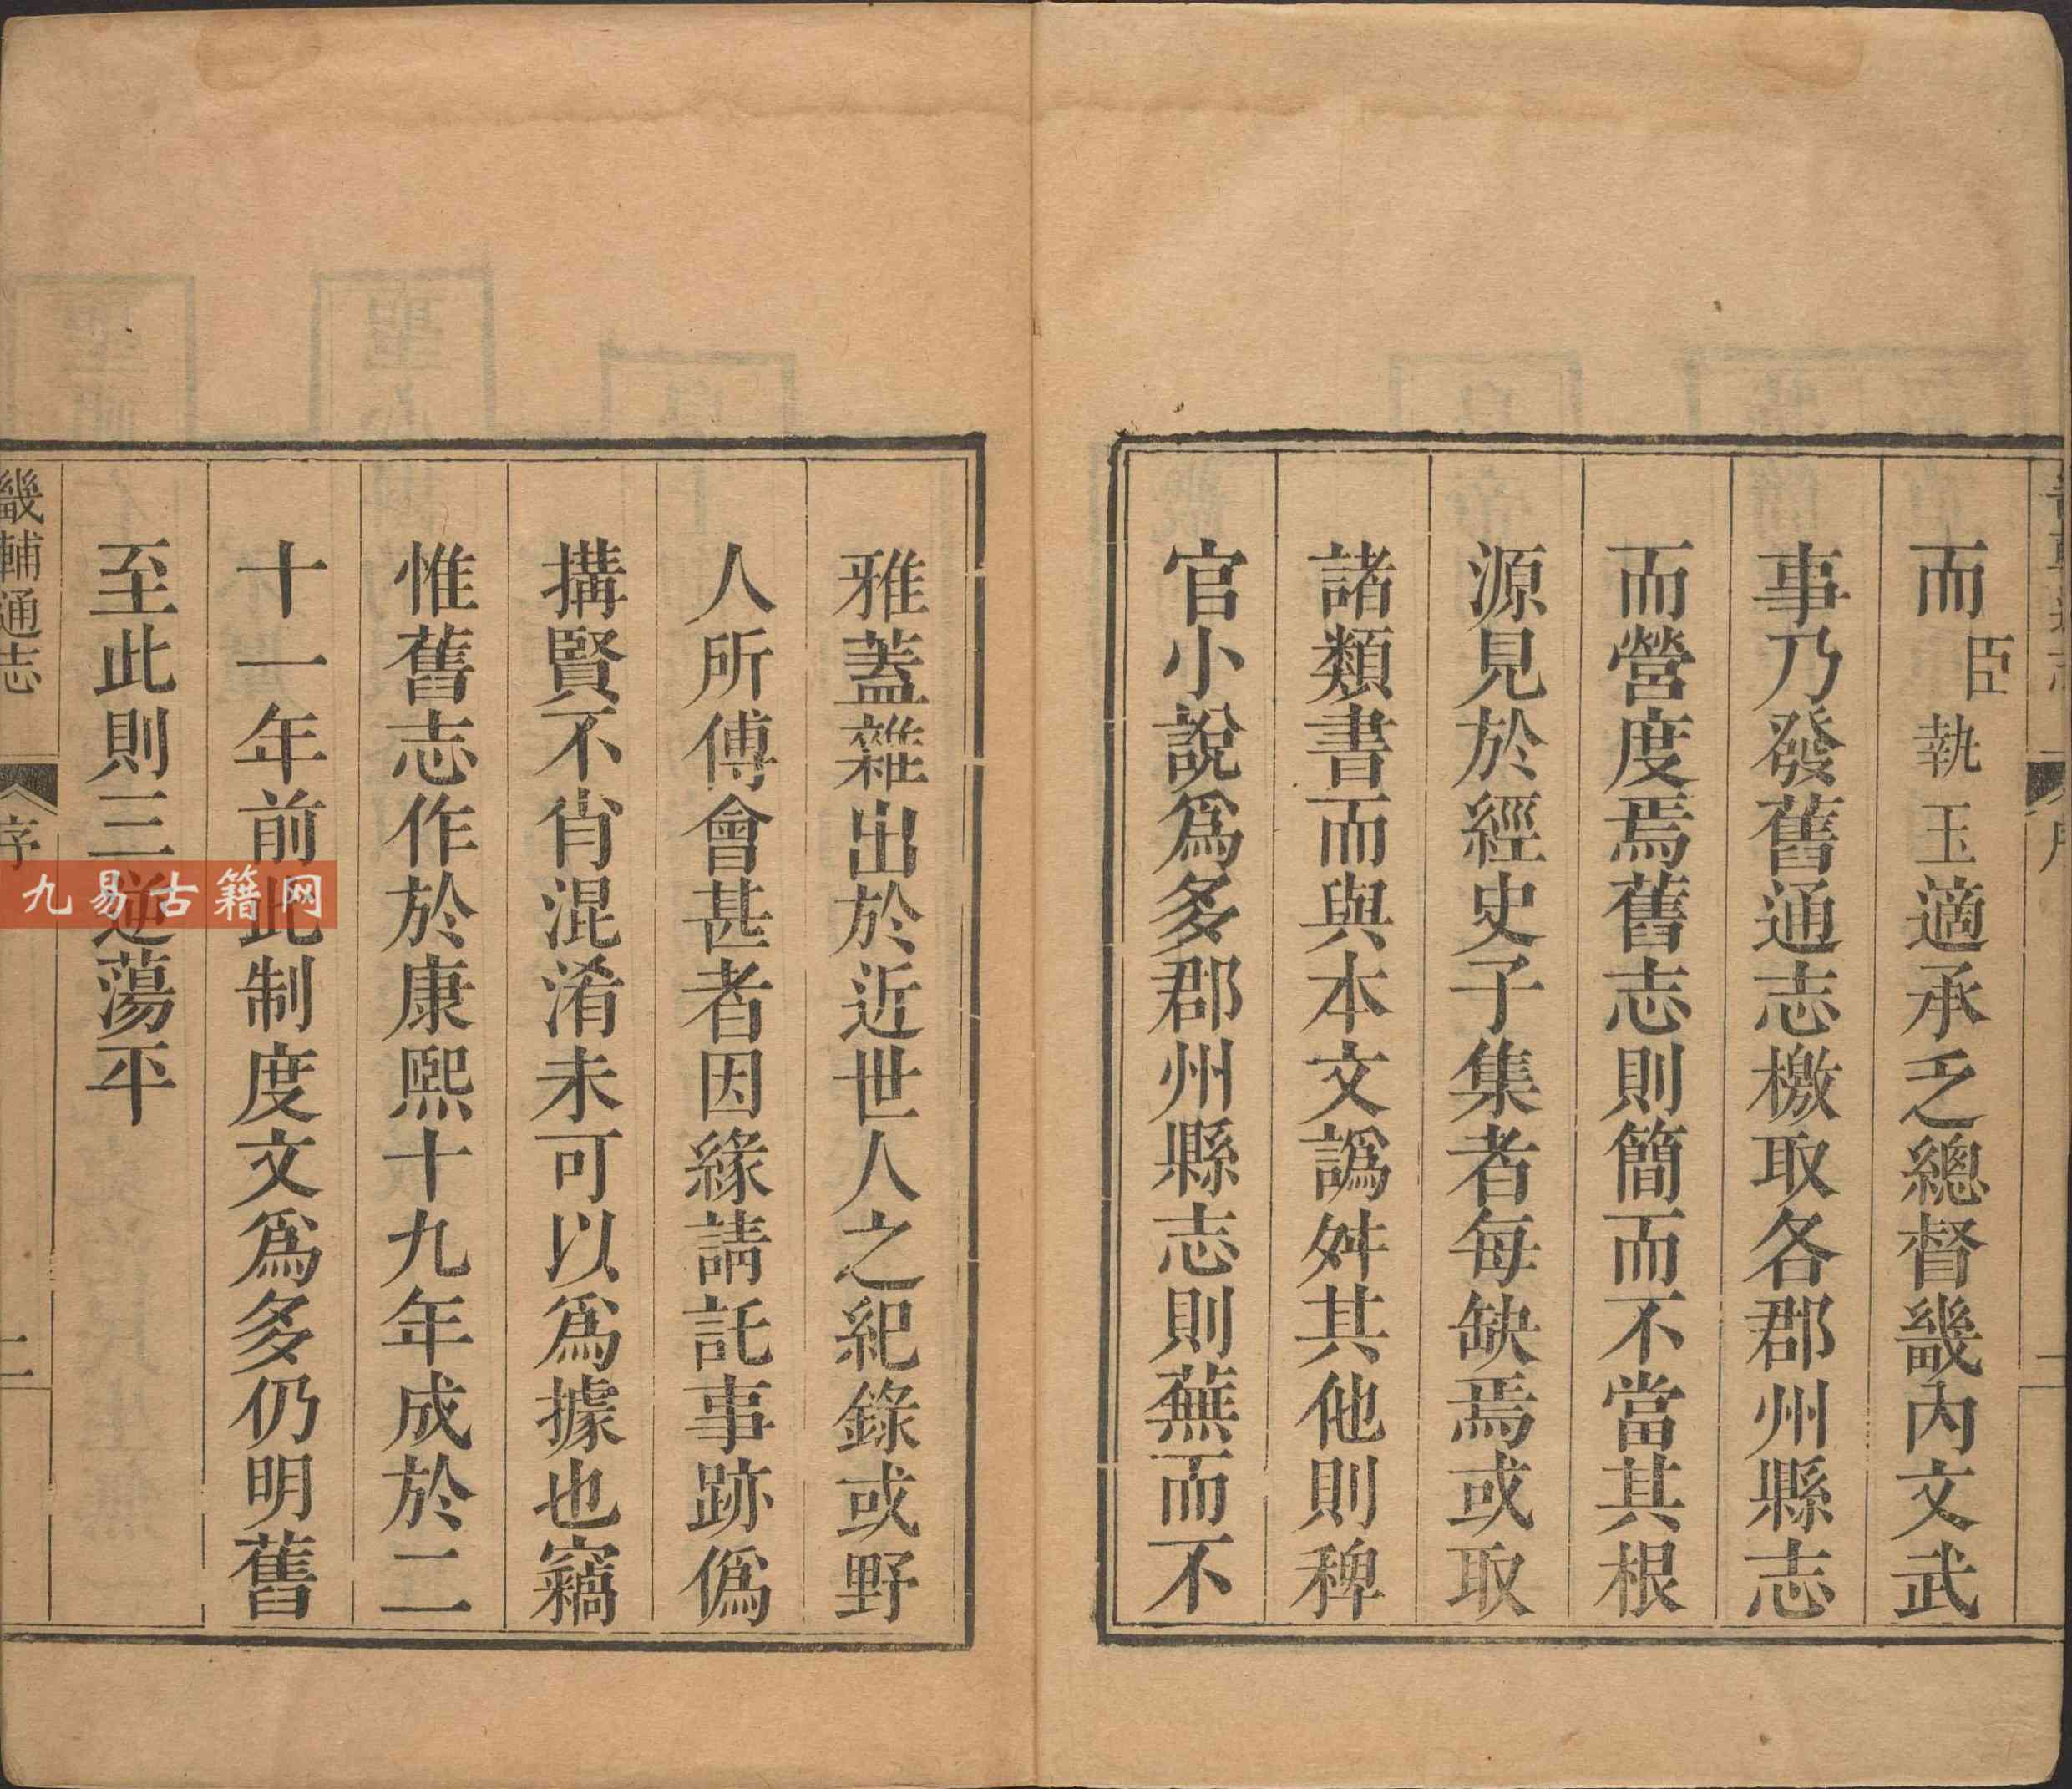 而臣執玉適承乏總督畿內文武
事乃發舊通志檄取各郡州縣志
而營度焉舊志則簡而不當其根
源見於經史子集者每缺焉或取
諸類書而與本文譌舛其他則稗
官小說爲多郡州縣志則蕪而不
雅蓋雜出於近世人之紀錄或野
人所傅會甚者因緣請託事跡僞
搆賢不肖混淆未可以爲據也竊
惟舊志作於康熙十九年成於二
十一年前此制度文爲多仍明舊
至此則三逆蕩平
畿輔通志
序
二
九易古籍网